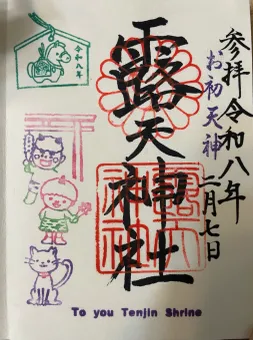 参拝令和八年
お初天神
二月七日
露天神社
令和八年
露天
神社
To you Tenjin Shrine